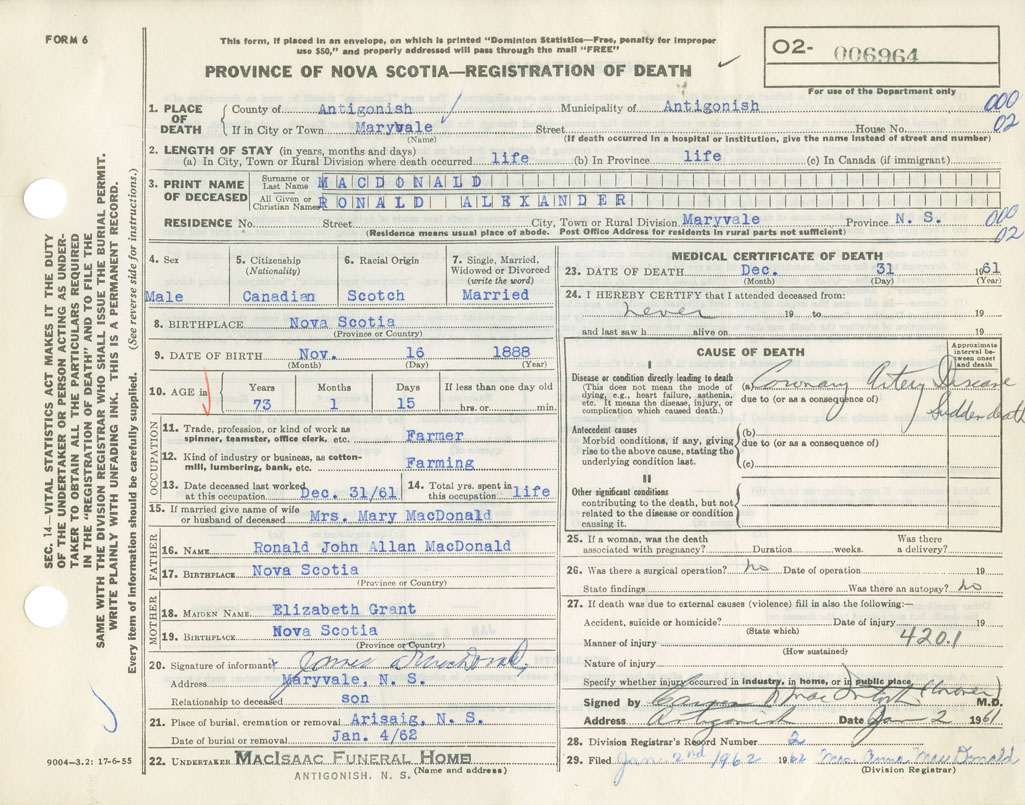 FORM 6
This form, if placed in an envelope, on which is printed "Dominion Statistics—Free, penalty for improper
use $50," and properly addressed will pass through the mail "FREE"
PROVINCE OF NOVA SCOTIA—REGISTRATION OF DEATH
O2- 006964
For use of the Department only
1. PLACE OF DEATH County of Antigonish Municipality of Antigonish 000
If in City or Town Maryvale Street House No. 02
(Name) (If death occurred in a hospital or institution, give the name instead of street and number)
2. LENGTH OF STAY (in years, months and days)
(a) In City, Town or Rural Division where death occurred life (b) In Province life (c) In Canada (if immigrant)
3. PRINT NAME OF DECEASED Surname or Last Name MACDONALD
All Given or Christian Names RONALD ALEXANDER
RESIDENCE No. Street City, Town or Rural Division Maryvale Province N. S. 000
(Residence means usual place of abode. Post Office Address for residents in rural parts not sufficient) 02
4. Sex 5. Citizenship (Nationality) 6. Racial Origin 7. Single, Married, Widowed or Divorced (write the word)
Male Canadian Scotch Married
8. BIRTHPLACE Nova Scotia
(Province or Country)
9. DATE OF BIRTH Nov. 16 1888
(Month) (Day) (Year)
10. AGE in Years Months Days If less than one day old
73 1 15 hrs. or min.
OCCUPATION
11. Trade, profession, or kind of work as
spinner, teamster, office clerk, etc. Farmer
12. Kind of industry or business, as cotton-
mill, lumbering, bank, etc. Farming
13. Date deceased last worked at this occupation Dec. 31/61 14. Total yrs. spent in this occupation life
15. If married give name of wife
or husband of deceased Mrs. Mary MacDonald
FATHER
16. NAME Ronald John Allan MacDonald
17. BIRTHPLACE Nova Scotia
(Province or Country)
MOTHER
18. MAIDEN NAME Elizabeth Grant
19. BIRTHPLACE Nova Scotia
(Province or Country)
20. Signature of informant James MacDonald
Address Maryvale, N. S.
Relationship to deceased son
21. Place of burial, cremation or removal Arisaig, N. S.
Date of burial or removal Jan. 4/62
22. UNDERTAKER MACISAAC FUNERAL HOME
ANTIGONISH, N. S. (Name and address)
MEDICAL CERTIFICATE OF DEATH
23. DATE OF DEATH Dec. 31 1961
(Month) (Day) (Year)
24. I HEREBY CERTIFY that I attended deceased from:
never 19 to 19
and last saw h alive on 19
CAUSE OF DEATH
Approximate interval between onset and death
I
Disease or condition directly leading to death (a) Coronary Artery Disease
(This does not mean the mode of
dying, e.g., heart failure, asthenia,
etc. It means the disease, injury, or
complication which caused death.)
due to (or as a consequence of) Sudden death
Antecedent causes (b)
Morbid conditions, if any, giving
rise to the above cause, stating the
underlying condition last.
due to (or as a consequence of)
(c)
II
Other significant conditions
contributing to the death, but not
related to the disease or condition
causing it.
25. If a woman, was the death Was there
associated with pregnancy? Duration weeks. a delivery?
26. Was there a surgical operation? no Date of operation 19
State findings Was there an autopsy? no
27. If death was due to external causes (violence) fill in also the following:—
Accident, suicide or homicide? Date of injury 19
(State which)
Manner of injury 420.1
(How sustained)
Nature of injury
Specify whether injury occurred in industry, in home, or in public place
Signed by MacIntosh (Coroner) M.D.
Address Antigonish Date Jan 2 1961
28. Division Registrar's Record Number 2
29. Filed Jan. 2nd 1962 1962 Mrs. Anna MacDonald
(Division Registrar)
SEC. 14—VITAL STATISTICS ACT MAKES IT THE DUTY
OF THE UNDERTAKER OR PERSON ACTING AS UNDER-
TAKER TO OBTAIN ALL THE PARTICULARS REQUIRED
IN THE "REGISTRATION OF DEATH" AND TO FILE THE
SAME WITH THE DIVISION REGISTRAR WHO SHALL ISSUE THE BURIAL PERMIT.
WRITE PLAINLY WITH UNFADING INK. THIS IS A PERMANENT RECORD.
Every item of information should be carefully supplied. (See reverse side for instructions.)
9004—3.2: 17-6-55